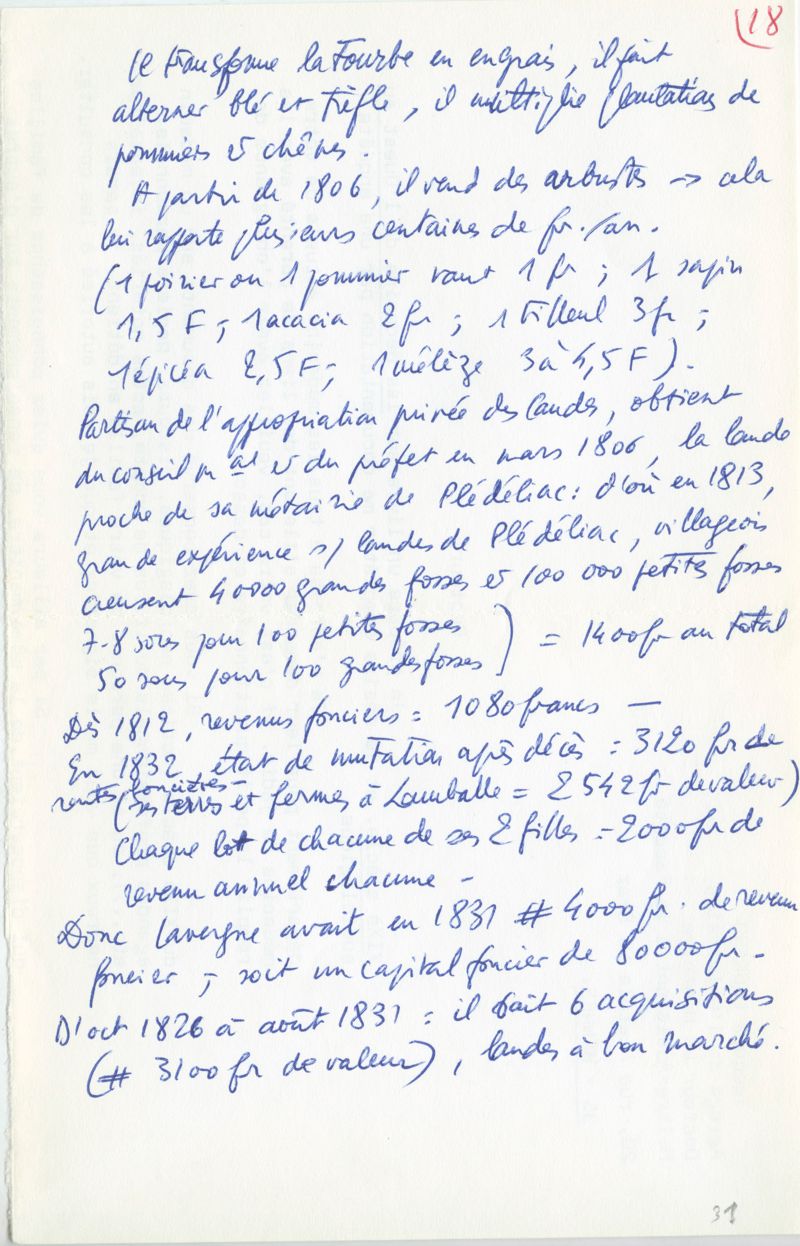 18
Il transforme la tourbe en engrais, il fait
alterner blé et trèfle, il multiplie plantations de
pommiers et chênes.
A partir de 1806, il vend des arbustes → cela
lui rapporte plusieurs centaines de fr./an.
(1 poirier ou 1 pommier vaut 1 fr ; 1 sapin
1,5 F ; 1 acacia 2 fr ; 1 tilleul 3 fr ;
1 épicéa 2,5 F ; 1 mélèze 3 à 4,5 F).
Partisan de l'appropriation privée des landes, obtient
du conseil m al et du préfet en mars 1806, la lande
proche de sa métairie de Plédéliac : d'où en 1813,
grande expérience s/ landes de Plédéliac, villageois
creusent 40000 grandes fosses et 100 000 petites fosses
7-8 sous pour 100 petites fosses
50 sous pour 100 grandes fosses ) = 1400 fr au total
Dès 1812, revenus fonciers = 1080 francs —
En 1832, état de mutation après décès = 3120 fr de
rentes foncières –
(ses terres et fermes à Lamballe = 2542 fr de valeur)
Chaque lot de chacune de ses 2 filles = 2000 fr de
revenu annuel chacune –
Donc Lavergne avait en 1831 # 4000 fr. de revenu
foncier ; soit un capital foncier de 80000 fr –
D'oct 1826 à août 1831 = il fait 6 acquisitions
(# 3100 fr de valeur), landes à bon marché.
31